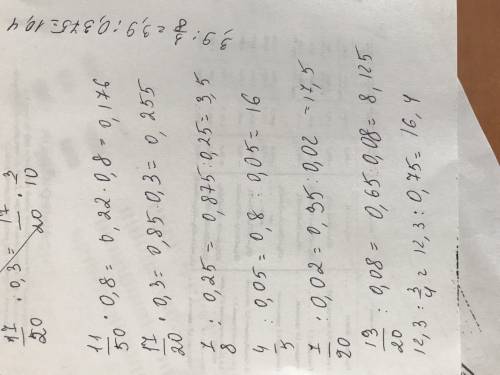 17/20 · 0,3 = 17/20 · 3/10
11/50 · 0,8 = 0,22 · 0,8 = 0,176
17/20 · 0,3 = 0,85 · 0,3 = 0,255
7/8 : 0,25 = 0,875 : 0,25 = 3,5
4/5 : 0,05 = 0,8 : 0,05 = 16
7/20 : 0,02 = 0,35 : 0,02 = 17,5
13/20 : 0,08 = 0,65 : 0,08 = 8,125
12,3 : 3/4 = 12,3 : 0,75 = 16,4
3,9 : 3/8 = 3,9 : 0,375 = 10,4